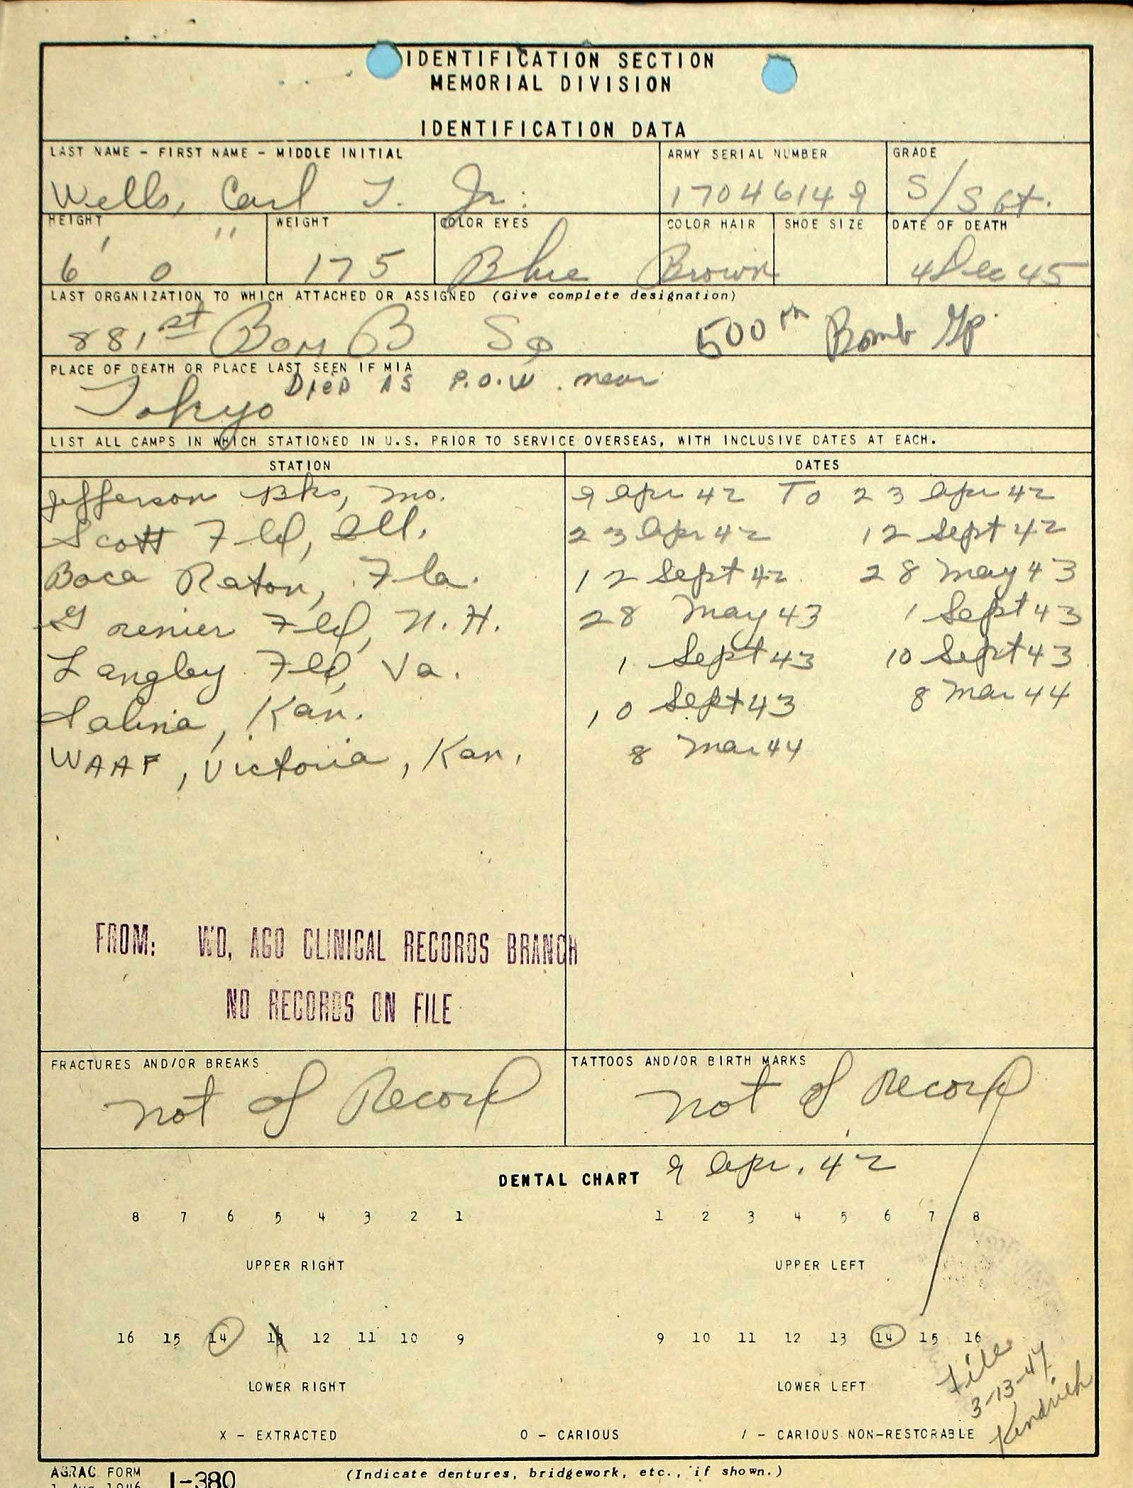 IDENTIFICATION SECTION
MEMORIAL DIVISION
IDENTIFICATION DATA
LAST NAME - FIRST NAME - MIDDLE INITIAL
ARMY SERIAL NUMBER
GRADE
Wells, Carl T. Jr.
17046149
S/Sgt.
HEIGHT
WEIGHT
COLOR EYES
COLOR HAIR
SHOE SIZE
DATE OF DEATH
6' 0"
175
Blue
Brown
4 Dec 45
LAST ORGANIZATION TO WHICH ATTACHED OR ASSIGNED (Give complete designation)
881st Bom B Sq 500th Bomb Gp.
PLACE OF DEATH OR PLACE LAST SEEN IF MIA
Died as P.O.W. near
Tokyo
LIST ALL CAMPS IN WHICH STATIONED IN U.S. PRIOR TO SERVICE OVERSEAS, WITH INCLUSIVE DATES AT EACH.
STATION DATES
Jefferson Bks, Mo. 9 Apr 42 To 23 Apr 42
Scott Fld, Ill. 23 Apr 42 12 Sept 42
Boca Raton, Fla. 12 Sept 42 28 May 43
Grenier Fld, N.H. 28 May 43 1 Sept 43
Langley Fld, Va. 1 Sept 43 10 Sept 43
Salina, Kan. 10 Sept 43 8 Mar 44
WAAF, Victoria, Kan. 8 Mar 44
FROM: WD, AGO CLINICAL RECORDS BRANCH
NO RECORDS ON FILE
FRACTURES AND/OR BREAKS
TATTOOS AND/OR BIRTH MARKS
not of Record
not of Record
DENTAL CHART 9 Apr. 42
8 7 6 5 4 3 2 1 1 2 3 4 5 6 7 8
UPPER RIGHT UPPER LEFT
16 15 14 13 12 11 10 9 9 10 11 12 13 14 15 16
LOWER RIGHT LOWER LEFT
File
3-13-47
Kendrick
X - EXTRACTED O - CARIOUS / - CARIOUS NON-RESTORABLE
AGRAC FORM
1 Aug 1946
1-380
(Indicate dentures, bridgework, etc., if shown.)